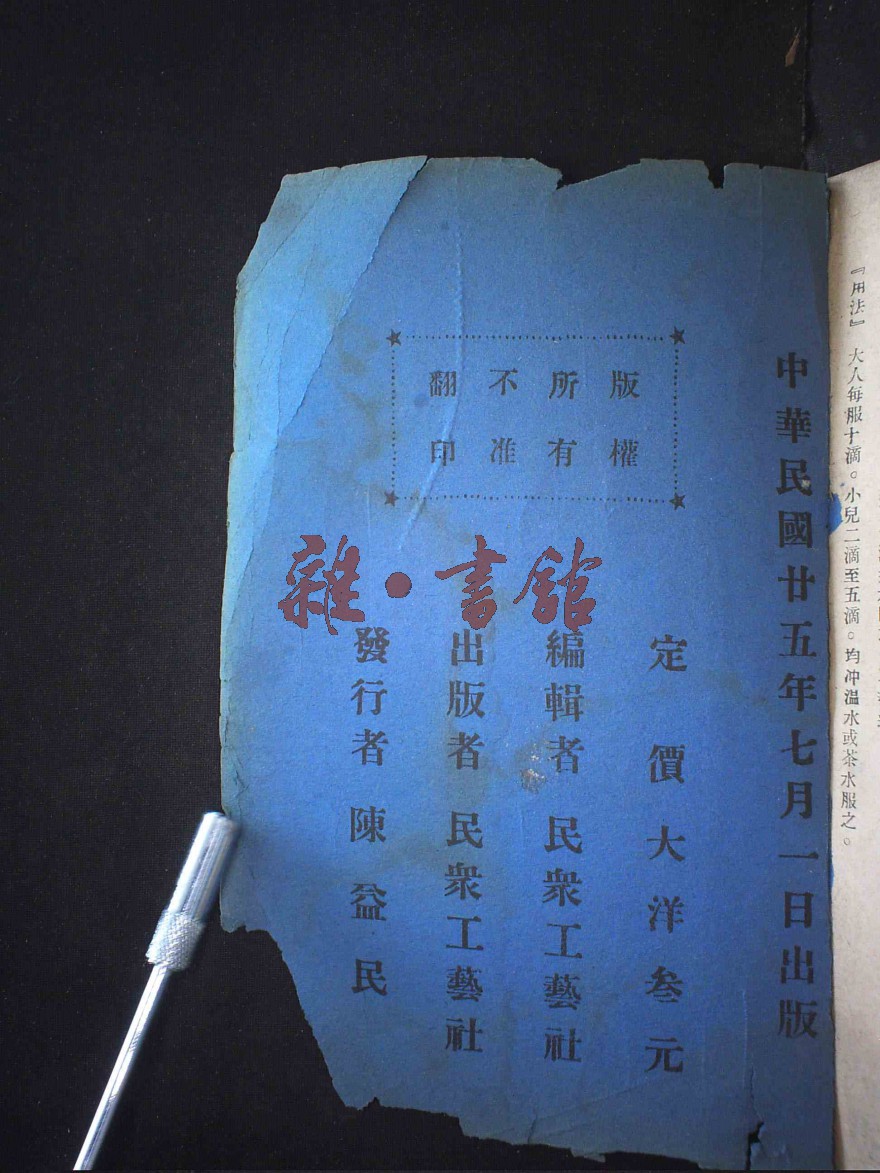 『用法』 大人每服十滴。小兒二滴至五滴。均冲溫水或茶水服之。
中華民國廿五年七月一日出版
版權
所有
不准
翻印
定價大洋叁元
編輯者 民衆工藝社
出版者 民衆工藝社
發行者 陳益民
雜·書館